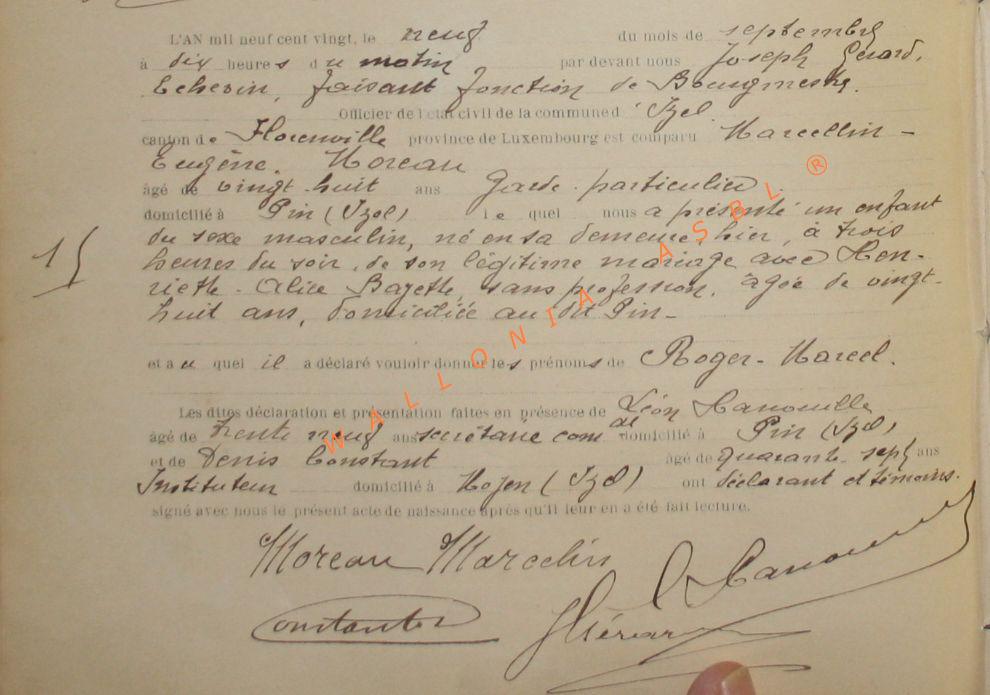 L'AN mil neuf cent vingt, le neuf du mois de septembre
à dix heures du matin par devant nous Joseph Gérard,
Echevin, faisant fonction de Bourgmestre.
Officier de l'état civil de la commune d'Izel
canton de Florenville province de Luxembourg est comparu Marcellin-
Eugène Moreau
âgé de vingt-huit ans Garde-particulier
domicilié à Pin (Izel) le quel nous a présenté un enfant
du sexe masculin, né en sa demeure, hier, à trois
heures du soir, de son légitime mariage avec Hen-
riette-Alice Bazette, sans profession, âgée de vingt-
huit ans, domiciliée au dit Pin-
15
et au quel il a déclaré vouloir donner les prénoms de Roger-Marcel.
Les dites déclaration et présentation faites en présence de Léon Hanouille
âgé de trente neuf ans secrétaire comal domicilié à Pin (Izel)
et de Denis Constant âgé de quarante-sept ans
Instituteur domicilié à Moyen (Izel) ont déclarant et témoins.
signé avec nous le présent acte de naissance après qu'il leur en a été fait lecture.
Moreau Marcelin
WALLONIA ASBL ®